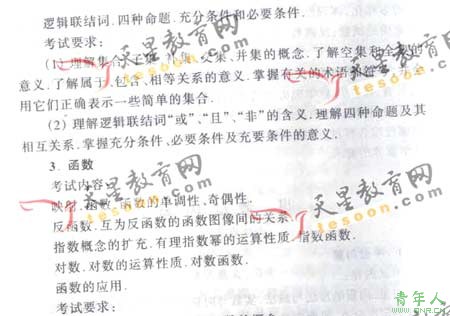 逻辑联结词.四种命题.充分条件和必要条件.
考试要求:
(1)理解集合、子集、补集、交集、并集的概念.了解空集和全集的
意义.了解属于、包含、相等关系的意义.掌握有关的术语和符号,
用它们正确表示一些简单的集合.
(2)理解逻辑联结词“或”、“且”、“非”的含义.理解四种命题及其
相互关系.掌握充分条件、必要条件及充要条件的意义.
3.函数
考试内容:
映射.函数.函数的单调性、奇偶性.
反函数.互为反函数的函数图像间的关系.
指数概念的扩充.有理指数幂的运算性质.指数函数.
对数.对数的运算性质.对数函数.
函数的应用.
考试要求:
天星教育网
tesoon.com
天星教育网
tesoon.com
天星教育网
tesoon.com
天星教育网
tesoon.com
青年人
WWW.QNR.CN